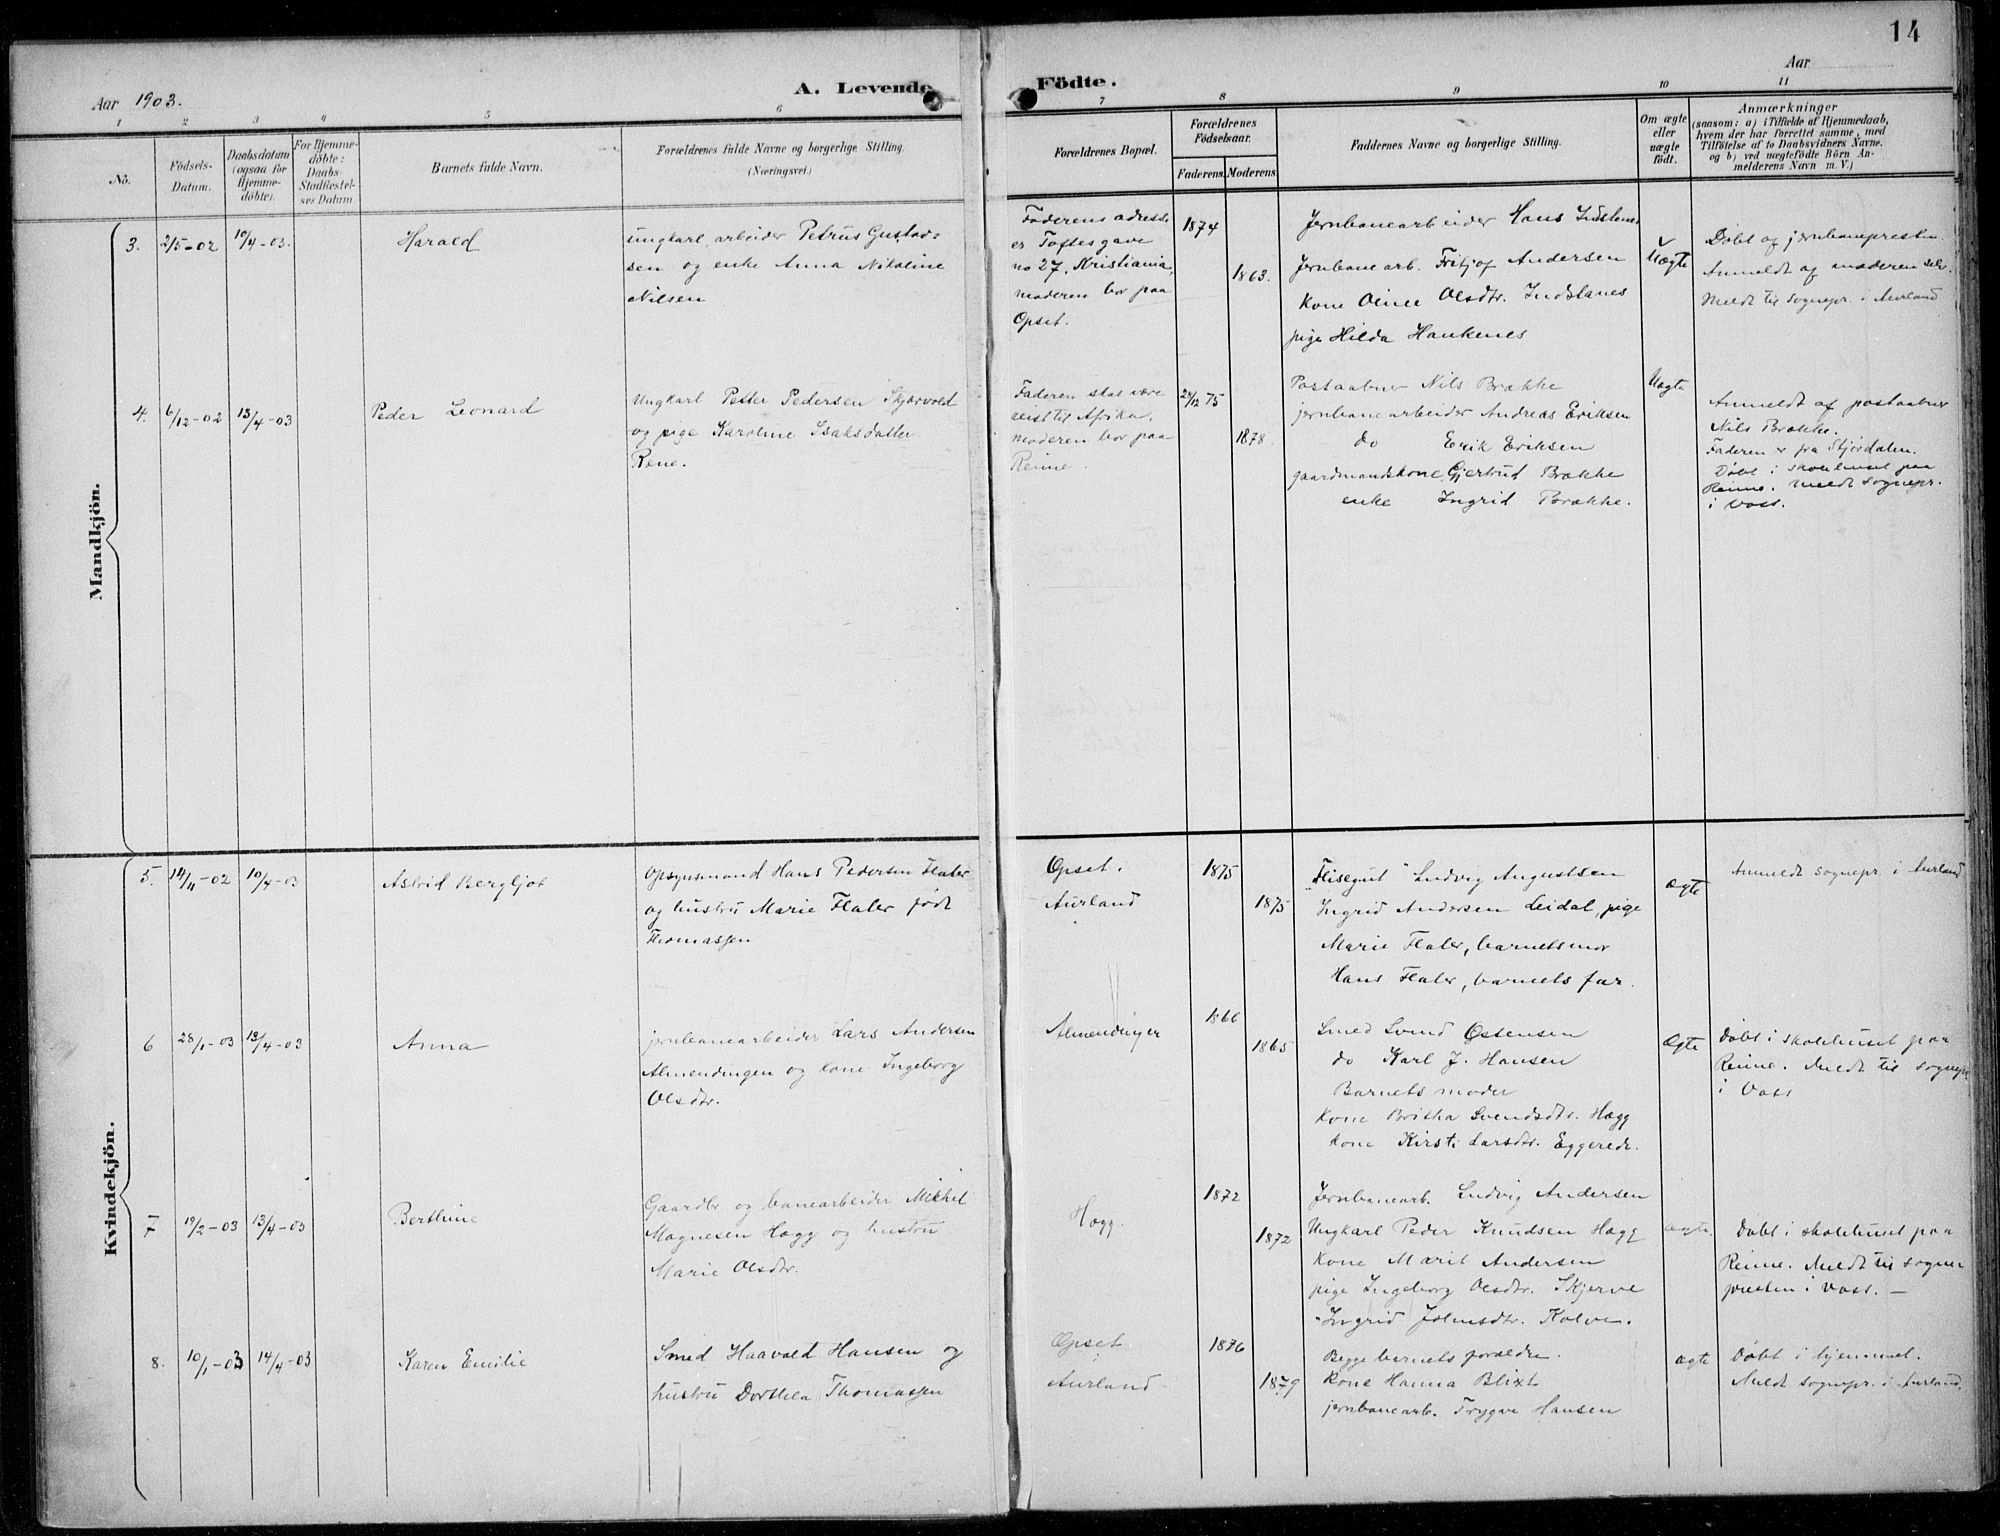 14
A. Levende Födte.
Aar 1903.
Aar
1 2 3 4 5 6 7 8 9 10 11
No.
Födsels-Datum.
Daabsdatum (ogsaa for Hjemme-döbte).
For Hjemme-döbte: Daabs Stadfæstel-ses Datum.
Barnets fulde Navn.
Forældrenes fulde Navne og borgerlige Stilling.
(Næringsvei.)
Forældrenes Bopæl.
Forældrenes Födselsaar.
Faderens. Moderens.
Faddernes Navne og borgerlige Stilling.
Om ægte eller uægte födt.
Anmærkninger
(saasom: a) i Tilfælde af Hjemmedaab,
hvem der har forrettet samme, med
Tilföielse af to Daabsvidners Navne.
og b) ved uægtefödte Börn An-
melderens Navn m. V.)
Mandkjön.
3. 2/5-02 10/4-03. Harald
ungkarl, arbeider Petrus Gustav-
sen og enke Anna Nikoline
Nilsen
Faderens adresse
er Toftesgave
no 27, Kristiania,
moderen bor paa
Opset.
1874
1863.
Jernbanearbeider Hans
Jernbanearb. Fritjof Andersen
Kone Oline Olsdtr. Indstanes
pige Hilda Haukenes
Uægte
Döbt af jernbanepresten.
Anmeldt af moderen selv.
Meldt til sognepr. i Aurland
4. 6/12-02 13/4-03 Peder Leonard
Ungkarl Petter Pedersen Skjervold
og pige Karoline Isaksdatter
Rone.
Faderen skal være
reist til Afrika,
moderen bor paa
Reime.
24/12 75
1878.
Postaabner Nils Brække
jernbanearbeider Andreas Eriksen
do Erik Eriksen
gaardmandskone Gjertrud Brække
enke Ingrid Brække.
Uægte
Anmeldt af postaabner
Nils Brække.
Faderen er fra Stjördalen.
Döbt i skolehuset paa
Reime. Meldt sognepr.
i Voss.
Kvindekjön.
5. 14/11-02 10/4-03 Astrid Bergljot
Opsynsmand Hans Pedersen Flater
og hustru Marie Flater födt
Thomassen
Opset i
Aurland
1875
1875
"Flisegut" Ludvig Augustsen
Ingrid Andersen Leidal, pige
Marie Flater, barnets mor
Hans Flater, barnets far.
Ægte
Anmeldt sognepr. i Aurland
6 28/1-03 13/4-03 Anna
jernbanearbeider Lars Andersen
Almendingen og kone Ingeborg
Olsdtr.
Almendingen
1866
1865
Smed Svend Östensen
do Karl J. Hansen
Barnets moder
Kone Britha Svendsdtr. Hægg
kone Kirsti Larsdtr. Eggereide.
Ægte
Döbt i skolehuset paa
Reime. Meldt til sognepr
i Voss
7 19/2-03 13/4-03 Berthine
Gaardbr. og banearbeider Mikkel
Magnesen Hægg og hustru
Marie Olsdtr.
Hægg.
1872
1872
Jernbanearb. Ludvig Andersen
Ungkarl Peder Knudsen Hægg
Kone Marit Andersen
pige Ingeborg Olsdtr. Skjerve
" Ingrid Johnsdtr. Kolve.
Ægte.
Döbt i skolehuset paa
Reime. Meldt til sogne-
presten i Voss. —
8. 10/1-03 14/4-03 Karen Emilie
Smed Haavald Hansen og
hustru Dorthea Thomassen
Opset
Aurland
1876
1879
Begge barnets forældre.
Kone Hanna Blixt
jernbanearb. Trygve Hansen
Ægte
Döbt i hjemmet.
Meldt sognepr. i Aurland.